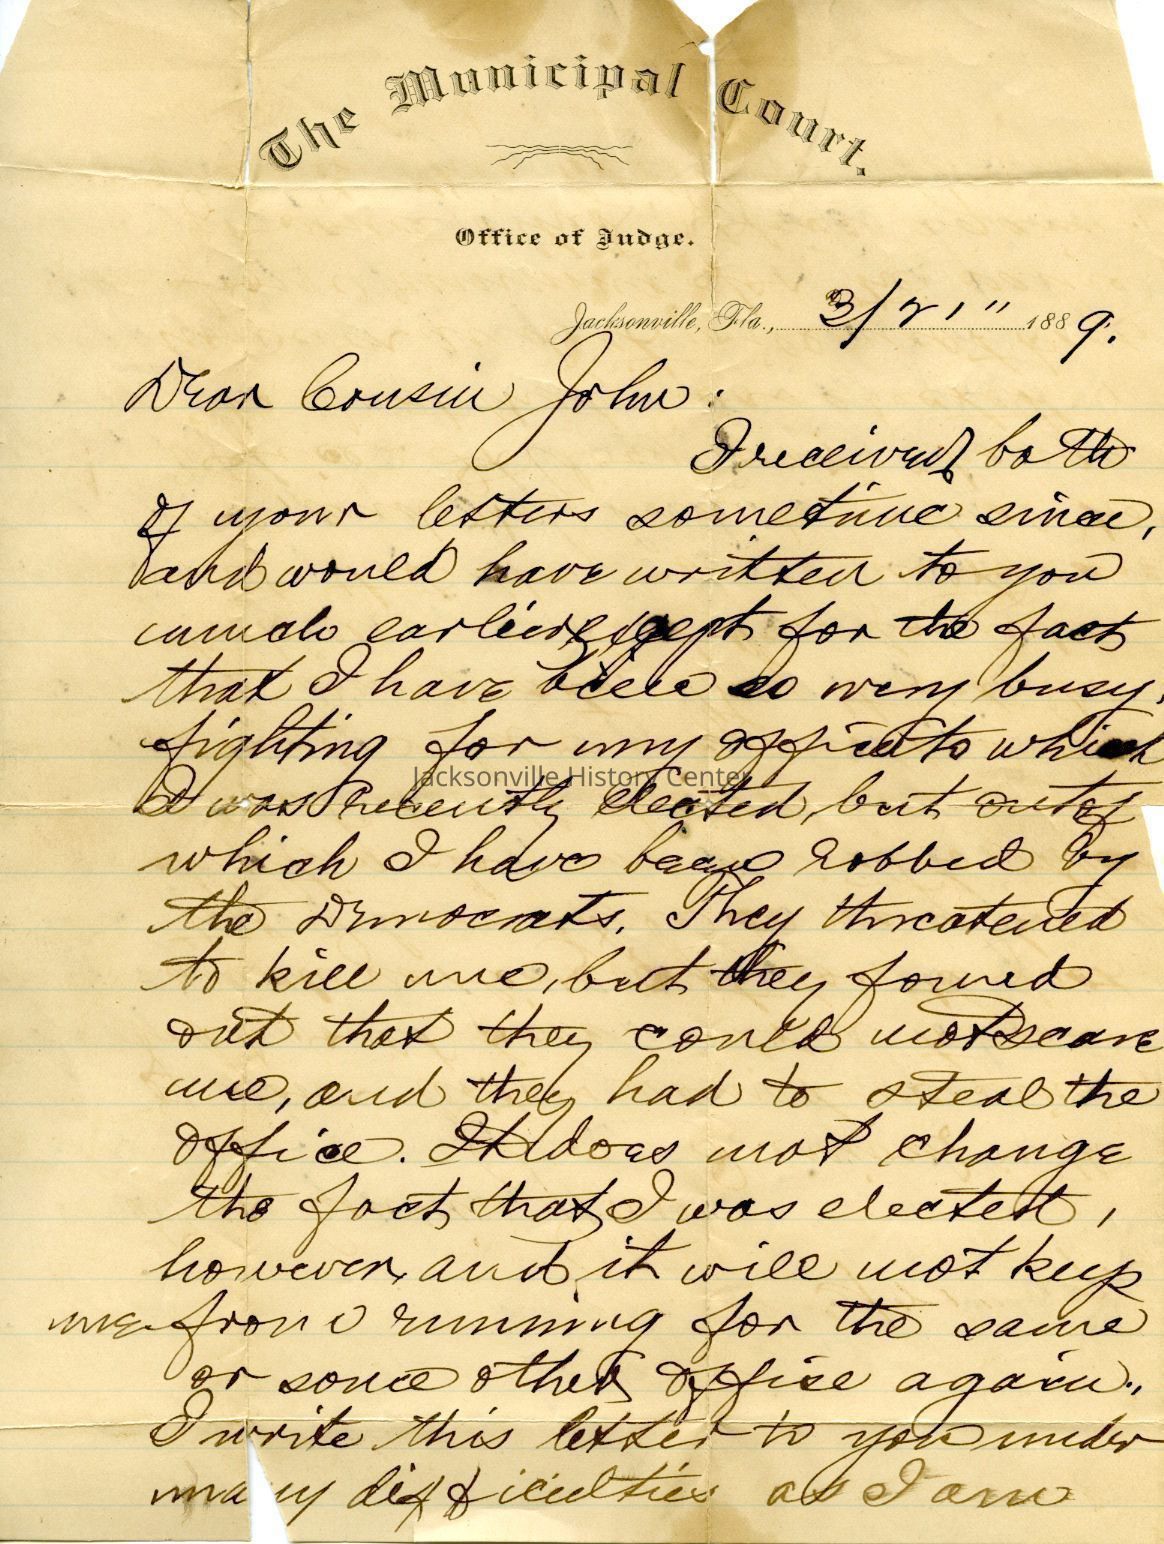 The Municipal Court.
Office of Judge.
Jacksonville, Fla., 3/21" 1889.
Dear Cousin John:
I received both
of your letters sometime since,
and would have written to you
much earlier except for the fact
that I have been so very busy,
fighting for my office to which
Jacksonville History Center
I was recently elected, but out of
which I have been robbed by
the Democrats. They threatened
to kill me, but they found
out that they could not scare
me, and they had to steal the
office. It does not change
the fact that I was elected,
however, and it will not keep
me from running for the same
or some other office again.,
I write this letter to you under
many difficulties as I am